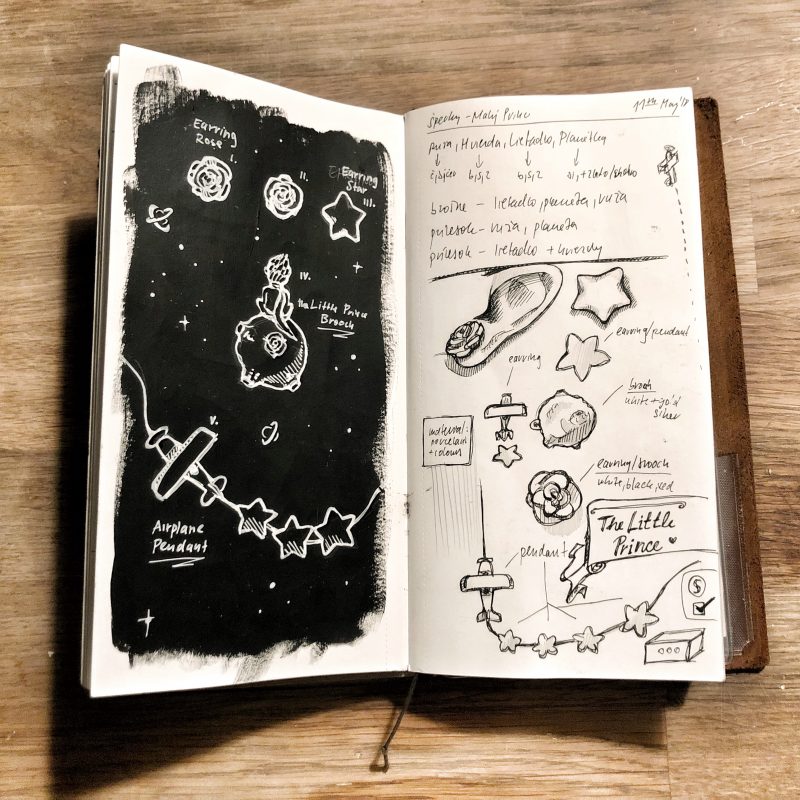 Earring
Rose I.
II.
Earring
Star
III.
IV.
the Little Prince
Brooch
V.
Airplane
Pendant
11th May'18
Šperky - Malý Princ
ruža, Hviezda, Lietadlo, Planétky
b,s,z
b,s,z
brošne - lietadlo, planéta, ruža
prívesok - ruža, planéta
prívesok - lietadlo + hviezdy
earring/pendant
earring
brooch
white + gold
silver
material:
porcelain
+ colours
earring/brooch
white, black, red
The Little
Prince
pendant
$